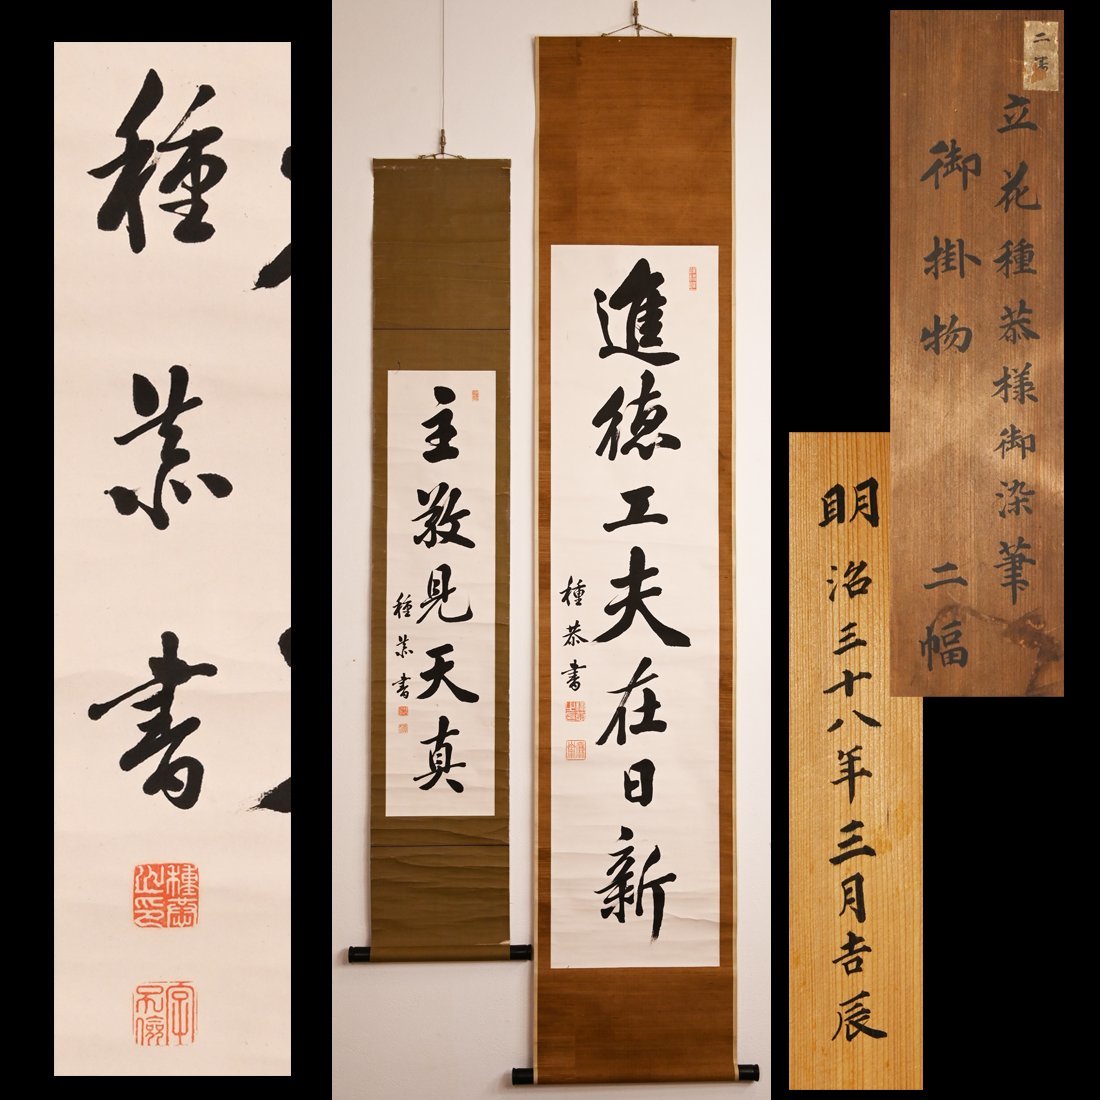 種恭書
種恭之印
主敬見天真
種恭書
進徳工夫在日新
種恭書
二番
立花種恭様御染筆
御掛物 二幅
明治三十八年三月吉辰